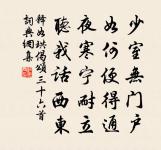 少室無門户
如何便得通
夜寒宁耐立
聽我話西東
釋如珙偈頌三十六首
詞典網集